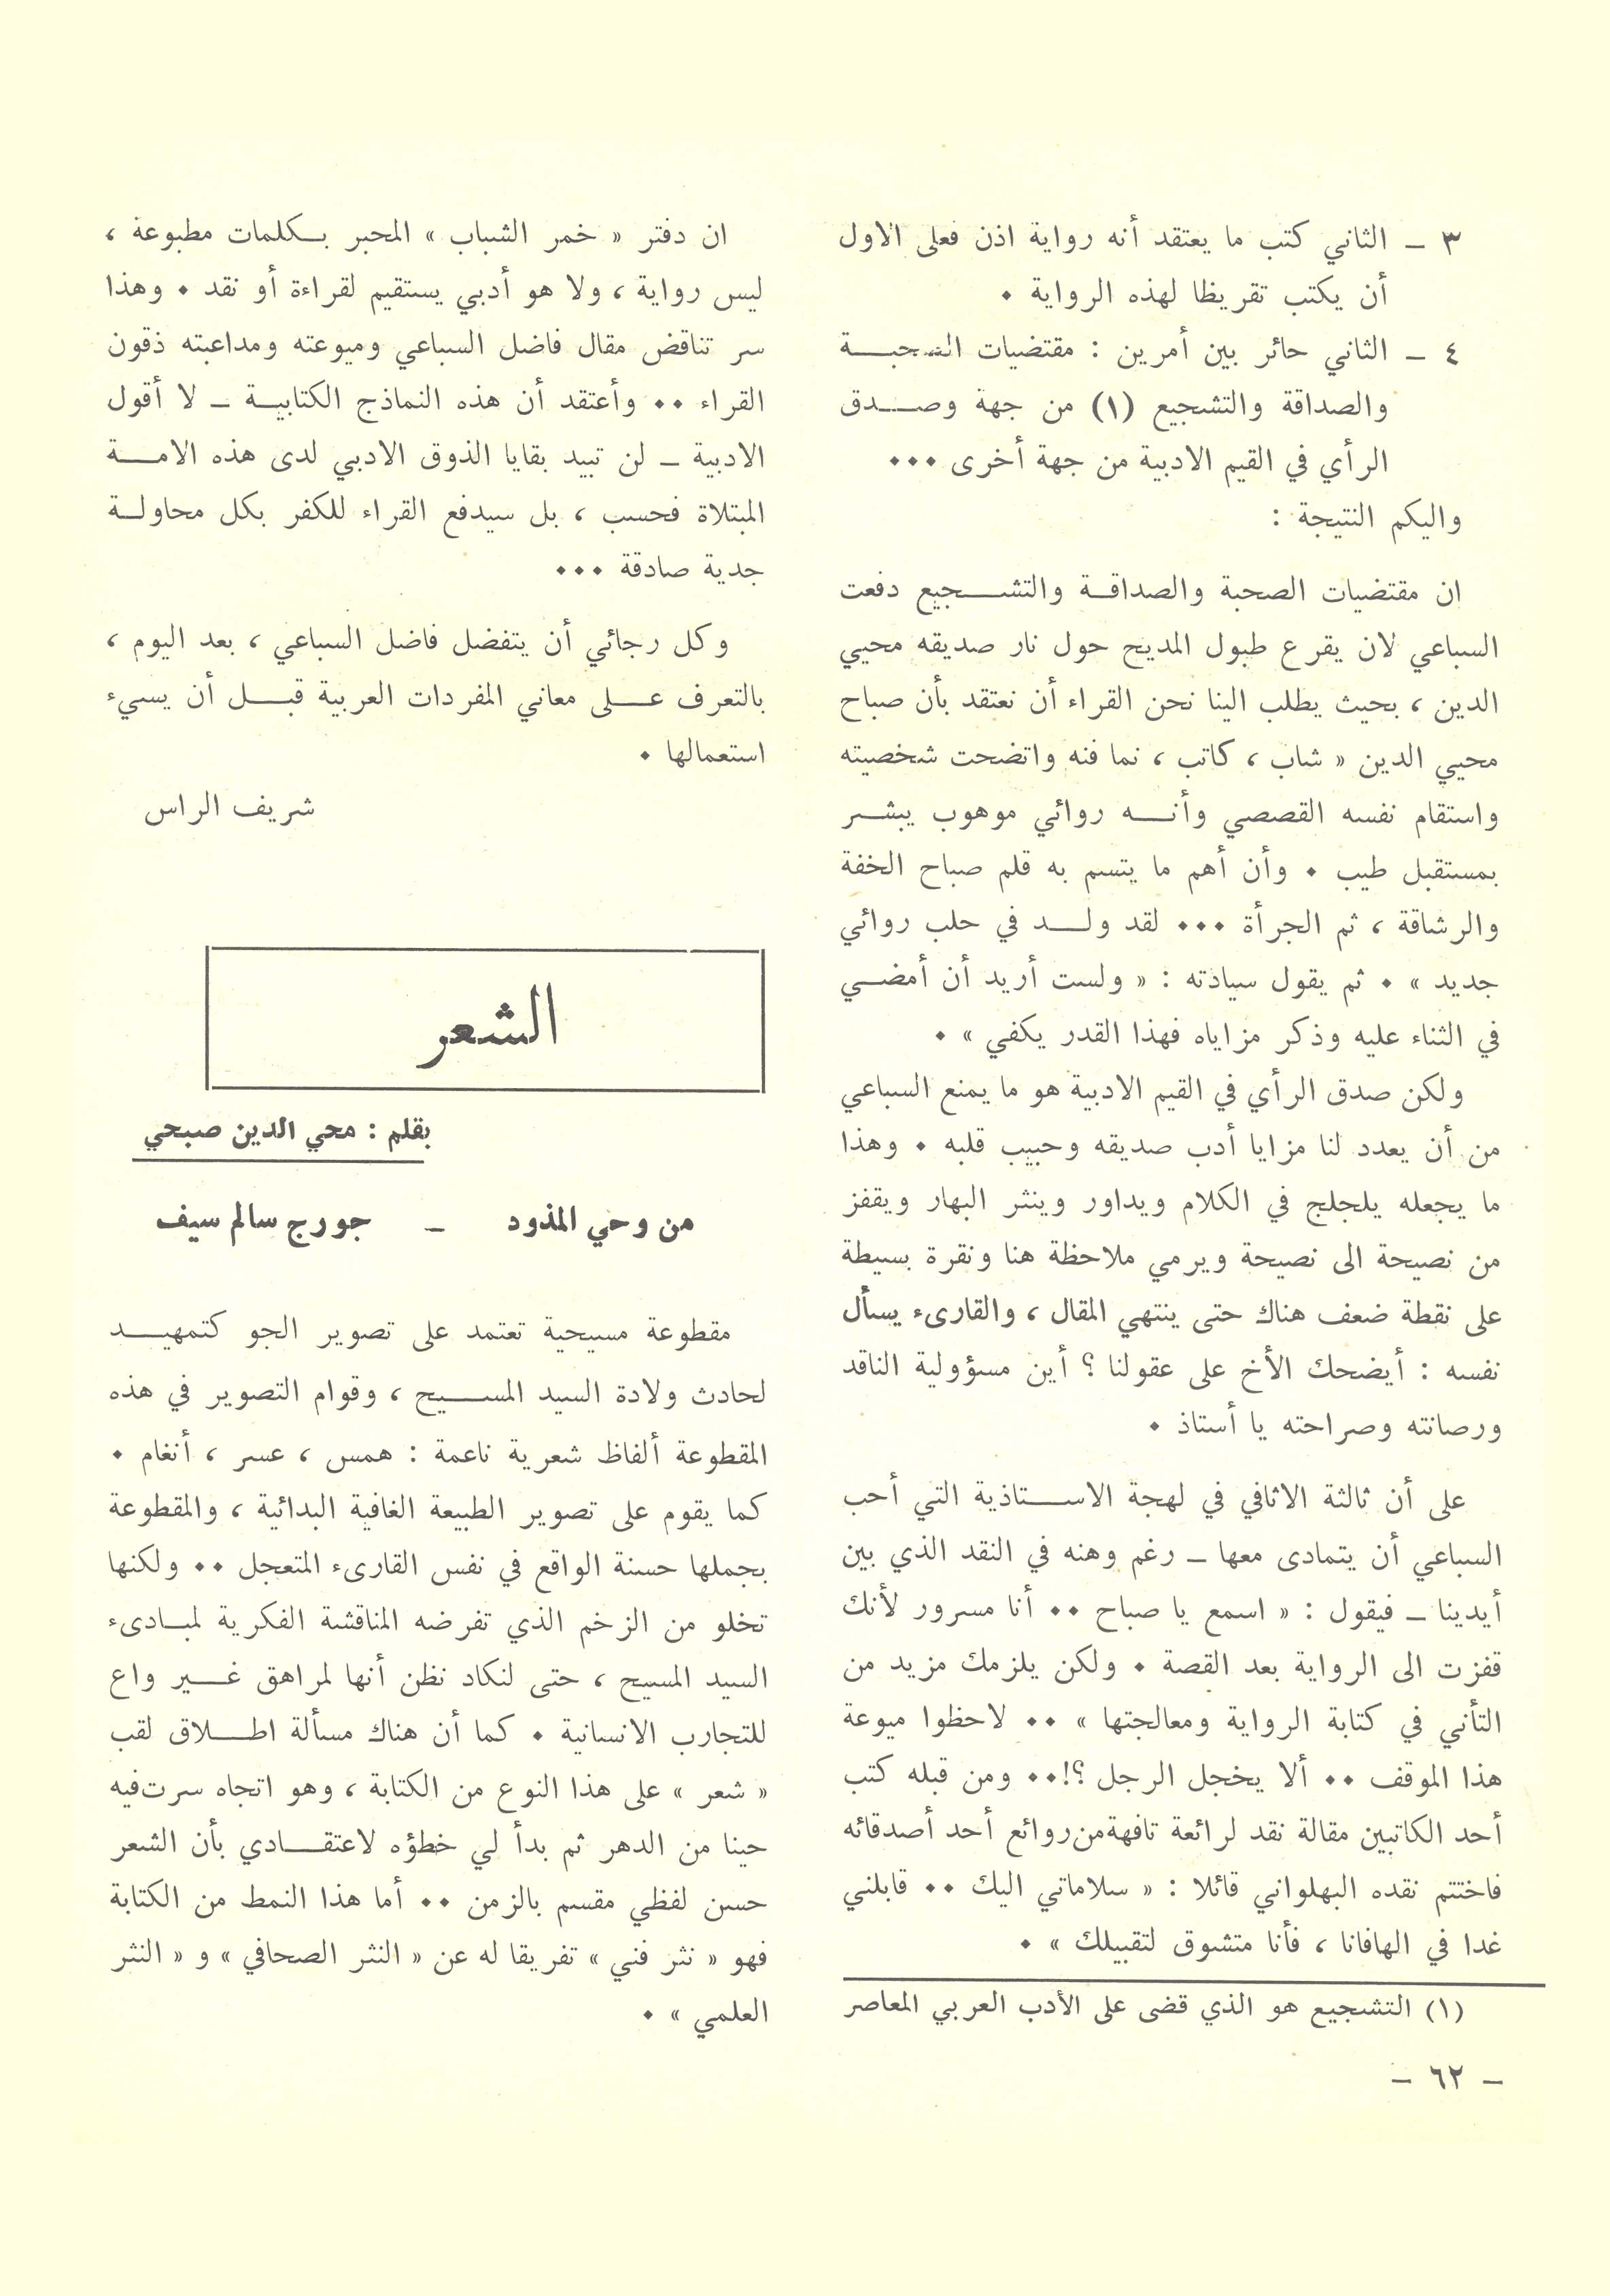 ٣ ــ الثاني كتب ما يعتقد أنه رواية اذن فعلى الاول
أن يكتب تقريظا لهذه الرواية ٠
٤ ــ الثاني حائر بين أمرين : مقتضيات الصحبة
والصداقة والتشجيع (١) من جهة وصدق
الرأي في القيم الادبية من جهة أخرى ٠٠٠
واليكم النتيجة :
ان مقتضيات الصحبة والصداقة والتشجيع دفعت
السباعي لان يقرع طبول المديح حول نار صديقه محيي
الدين ، بحيث يطلب الينا نحن القراء أن نعتقد بأن صباح
محيي الدين « شاب ، كاتب ، نما فنه واتضحت شخصيته
واستقام نفسه القصصي وأنه روائي موهوب يبشر
بمستقبل طيب ٠ وأن أهم ما يتسم به قلم صباح الخفة
والرشاقة ، ثم الجرأة ٠٠٠ لقد ولد في حلب روائي
جديد » ٠ ثم يقول سيادته : « ولست أريد أن أمضي
في الثناء عليه وذكر مزاياه فهذا القدر يكفي » ٠
ولكن صدق الرأي في القيم الادبية هو ما يمنع السباعي
من أن يعدد لنا مزايا أدب صديقه وحبيب قلبه ٠ وهذا
ما يجعله يلجلج في الكلام ويداور وينثر البهار ويقفز
من نصيحة الى نصيحة ويرمي ملاحظة هنا ونقرة بسيطة
على نقطة ضعف هناك حتى ينتهي المقال ، والقارىء يسأل
نفسه : أيضحك الأخ على عقولنا ؟ أين مسؤولية الناقد
ورصانته وصراحته يا أستاذ ٠
على أن ثالثة الاثافي في لهجة الاستاذية التي أحب
السباعي أن يتمادى معها ــ رغم وهنه في النقد الذي بين
أيدينا ــ فيقول : « اسمع يا صباح ٠٠ أنا مسرور لأنك
قفزت الى الرواية بعد القصة ٠ ولكن يلزمك مزيد من
التأني في كتابة الرواية ومعالجتها » ٠٠ لاحظوا ميوعة
هذا الموقف ٠٠ ألا يخجل الرجل ؟!٠٠ ومن قبله كتب
أحد الكاتبين مقالة نقد لرائعة تافهة من روائع أحد أصدقائه
فاختتم نقده البهلواني قائلا : « سلاماتي اليك ٠٠ قابلني
غدا في الهافانا ، فأنا متشوق لتقبيلك » ٠
(١) التشجيع هو الذي قضى على الأدب العربي المعاصر
ــ ٦٢ ــ
ان دفتر « خمر الشباب » المحبر بكلمات مطبوعة ،
ليس رواية ، ولا هو أدبي يستقيم لقراءة أو نقد ٠ وهذا
سر تناقض مقال فاضل السباعي وميوعته ومداعبته ذقون
القراء ٠٠ وأعتقد أن هذه النماذج الكتابية ــ لا أقول
الادبية ــ لن تبيد بقايا الذوق الادبي لدى هذه الامة
المبتلاة فحسب ، بل سيدفع القراء للكفر بكل محاولة
جدية صادقة ٠٠٠
وكل رجائي أن يتفضل فاضل السباعي ، بعد اليوم ،
بالتعرف على معاني المفردات العربية قبل أن يسيء
استعمالها ٠
شريف الراس
الشعر
بقلم : محي الدين صبحي
من وحي المذود ــ جورج سالم سيف
مقطوعة مسيحية تعتمد على تصوير الجو كتمهيد
لحادث ولادة السيد المسيح ، وقوام التصوير في هذه
المقطوعة ألفاظ شعرية ناعمة : همس ، عسر ، أنغام ٠
كما يقوم على تصوير الطبيعة الغافية البدائية ، والمقطوعة
بجملها حسنة الواقع في نفس القارىء المتعجل ٠٠ ولكنها
تخلو من الزخم الذي تفرضه المناقشة الفكرية لمبادىء
السيد المسيح ، حتى لنكاد نظن أنها لمراهق غير واع
للتجارب الانسانية ٠ كما أن هناك مسألة اطلاق لقب
« شعر » على هذا النوع من الكتابة ، وهو اتجاه سرت فيه
حينا من الدهر ثم بدأ لي خطؤه لاعتقادي بأن الشعر
حسن لفظي مقسم بالزمن ٠٠ أما هذا النمط من الكتابة
فهو « نثر فني » تفريقا له عن « النثر الصحافي » و « النثر
العلمي » ٠